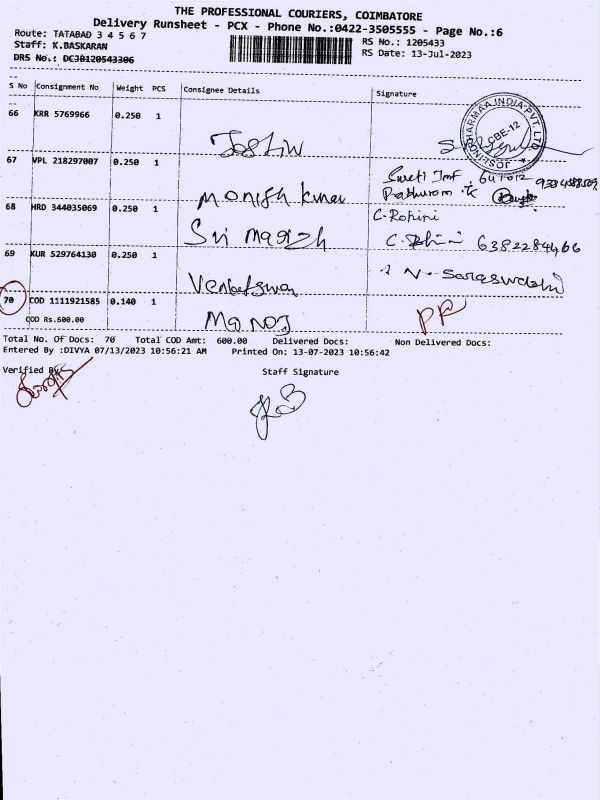 THE PROFESSIONAL COURIERS, COIMBATORE
Delivery Runsheet - PCX - Phone No.:0422-3505555 - Page No.:6
Route: TATABAD 3 4 5 6 7
Staff: K.BASKARAN
DRS No.: DCJB120543306
RS No.: 1205433
RS Date: 13-Jul-2023
S No Consignment No Weight PCS Consignee Details Signature
66 KRR 5769966 0.250 1
Joslin
JOSLIN PHARMAA INDIA PVT. LTD
CBE-12
67 VPL 218297007 0.250 1
Monish Kumar
68 HRD 344035069 0.250 1
Sri Magizh
C. Rohini
C. Rohini 6382284466
69 KUR 529764130 0.250 1
Venkateswar
N. Saraswathi
70 COD 1111921585 0.140 1
COD Rs.600.00
Manoj
PR
Total No. Of Docs: 70 Total COD Amt: 600.00 Delivered Docs: Non Delivered Docs:
Entered By :DIVYA 07/13/2023 10:56:21 AM Printed On: 13-07-2023 10:56:42
Verified By
Staff Signature